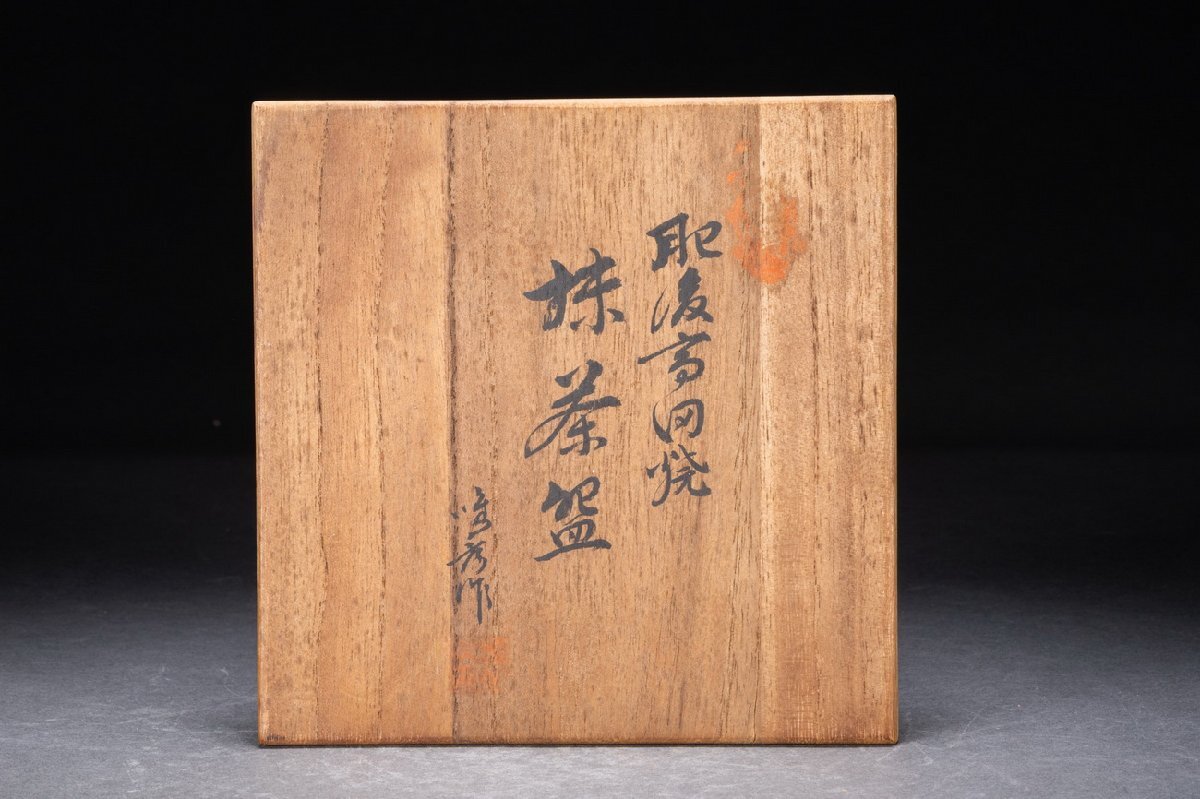 肥後高田焼
抹茶盌
作